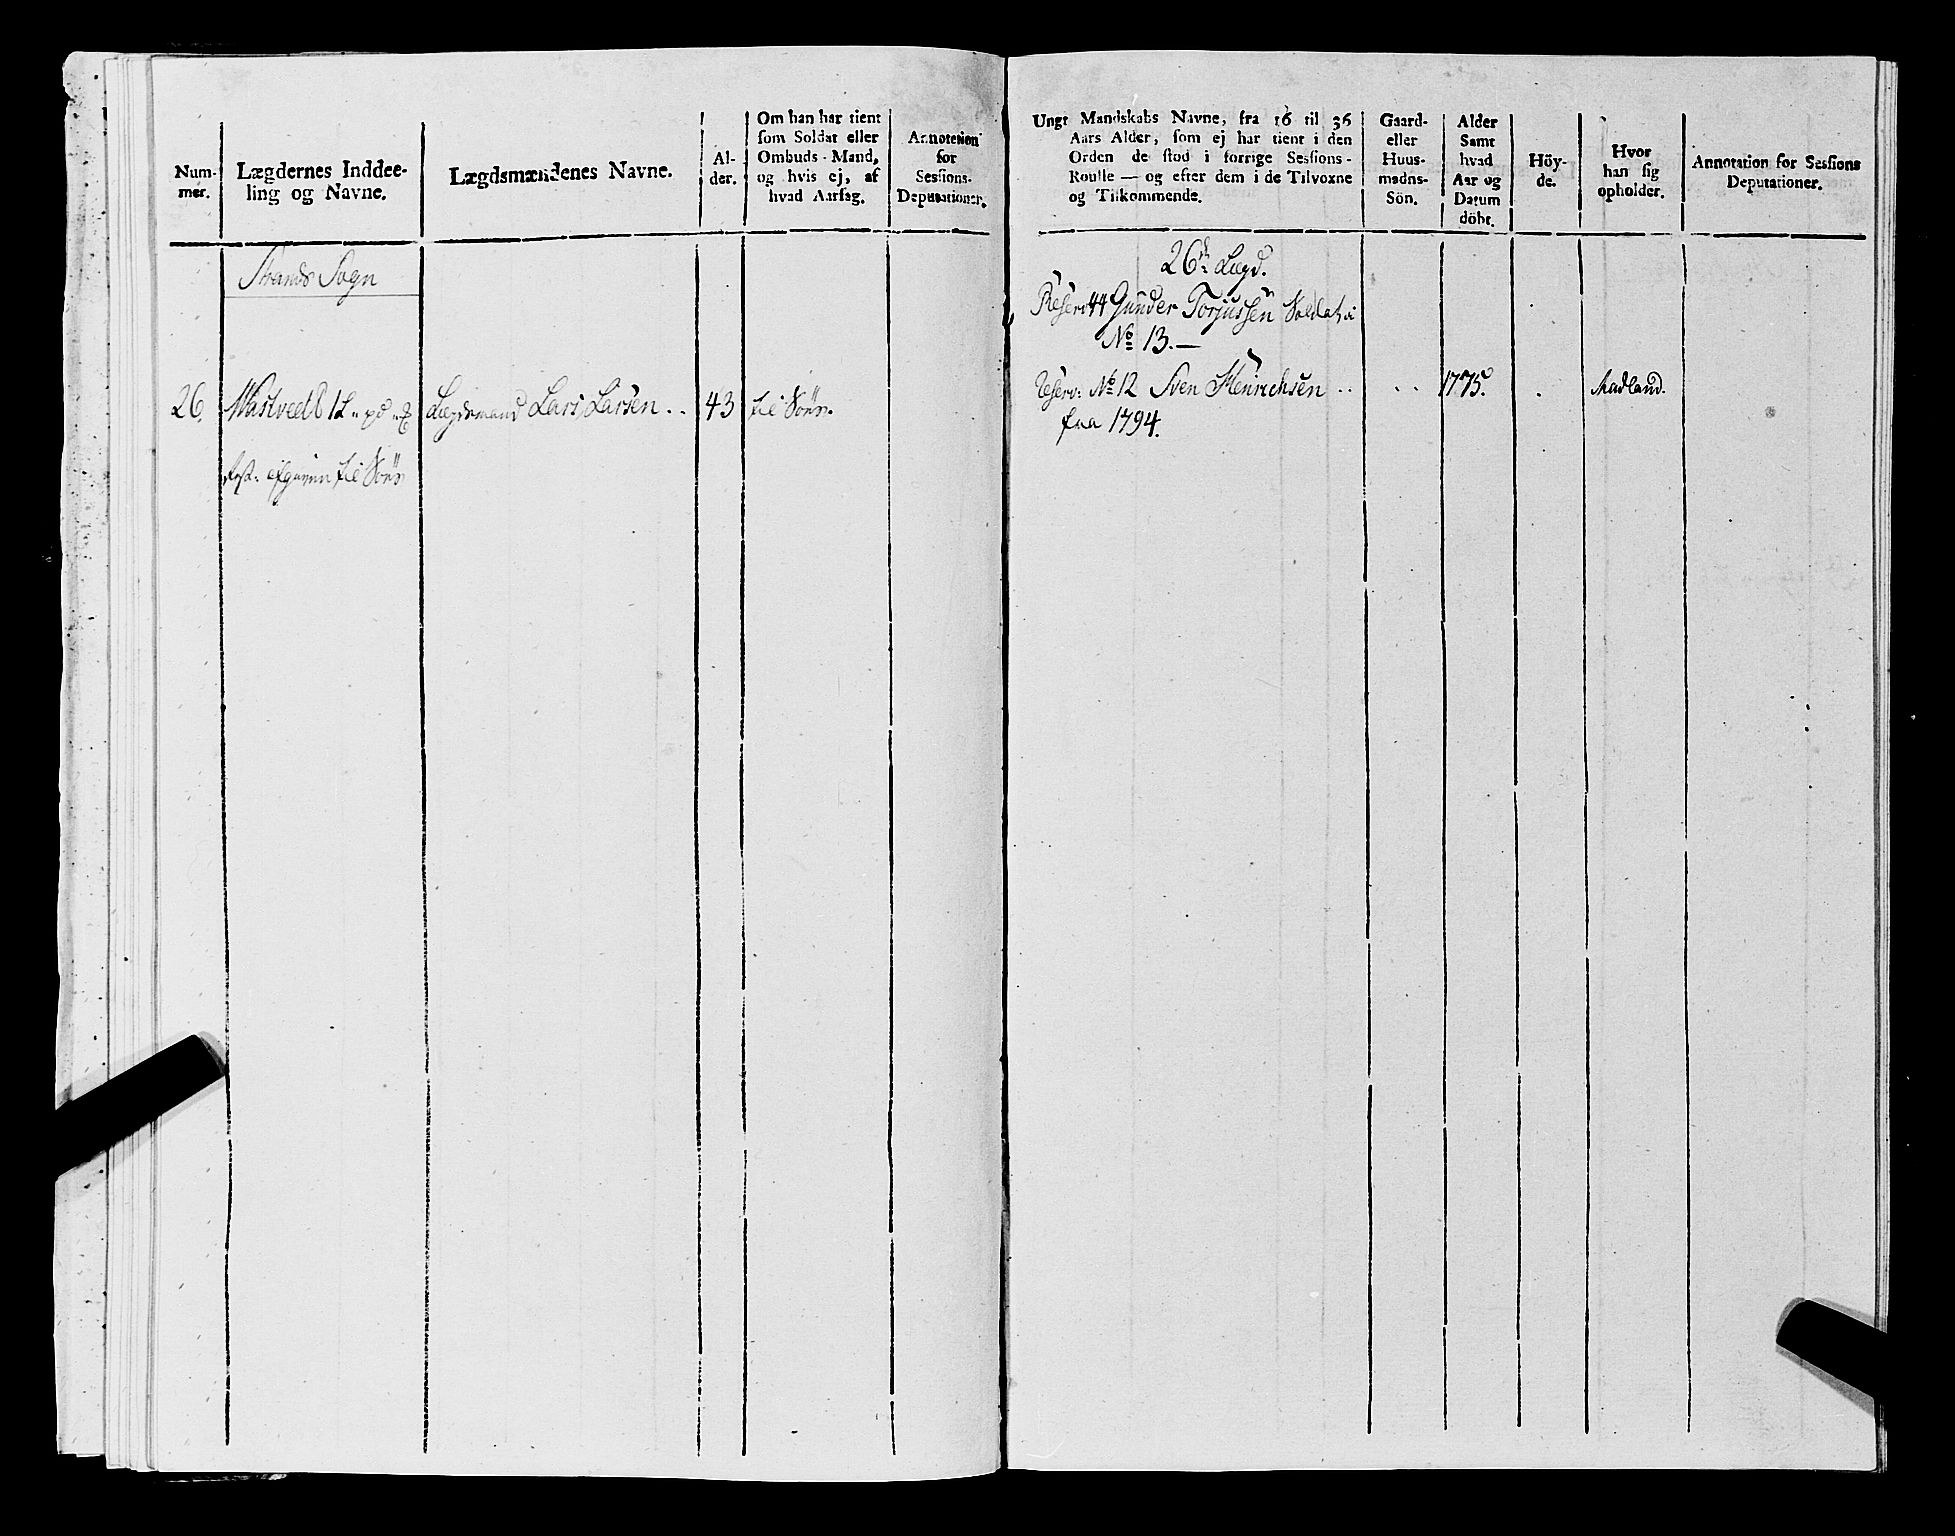 Num-
mer.
Lægdernes Inddee-
ling og Navne.
Lægdsmændenes Navne.
Al-
der.
Om han har tient
som Soldat eller
Ombuds-Mand,
og hvis ej, af
hvad Aarsag.
Annotetion
for
Sessions-
Deputationer.
Strands Sogn
26.
Wastveedt 1 L
Lægdsmand Lars Larsen . .
43
til Søes.
til Søes
Ungt Mandskabs Navne, fra 16 til 36
Aars Alder, som ej har tient i den
Orden de stod i forrige Sessions-
Roulle — og efter dem i de Tilvoxne
og Tilkommende.
Gaard-
eller
Huus-
mands-
Sön.
Alder
Samt
hvad
Aar og
Datum
döbt.
Höy-
de.
Hvor
han sig
opholder.
Annotation for Sessions
Deputationer.
26de Lægd.
Reserv 44 Gunder Torjussen Soldat i
No 13. —
Reserv: No 12 Sven Henrichsen . .
. .
1775.
.
Madland.
fra 1794.